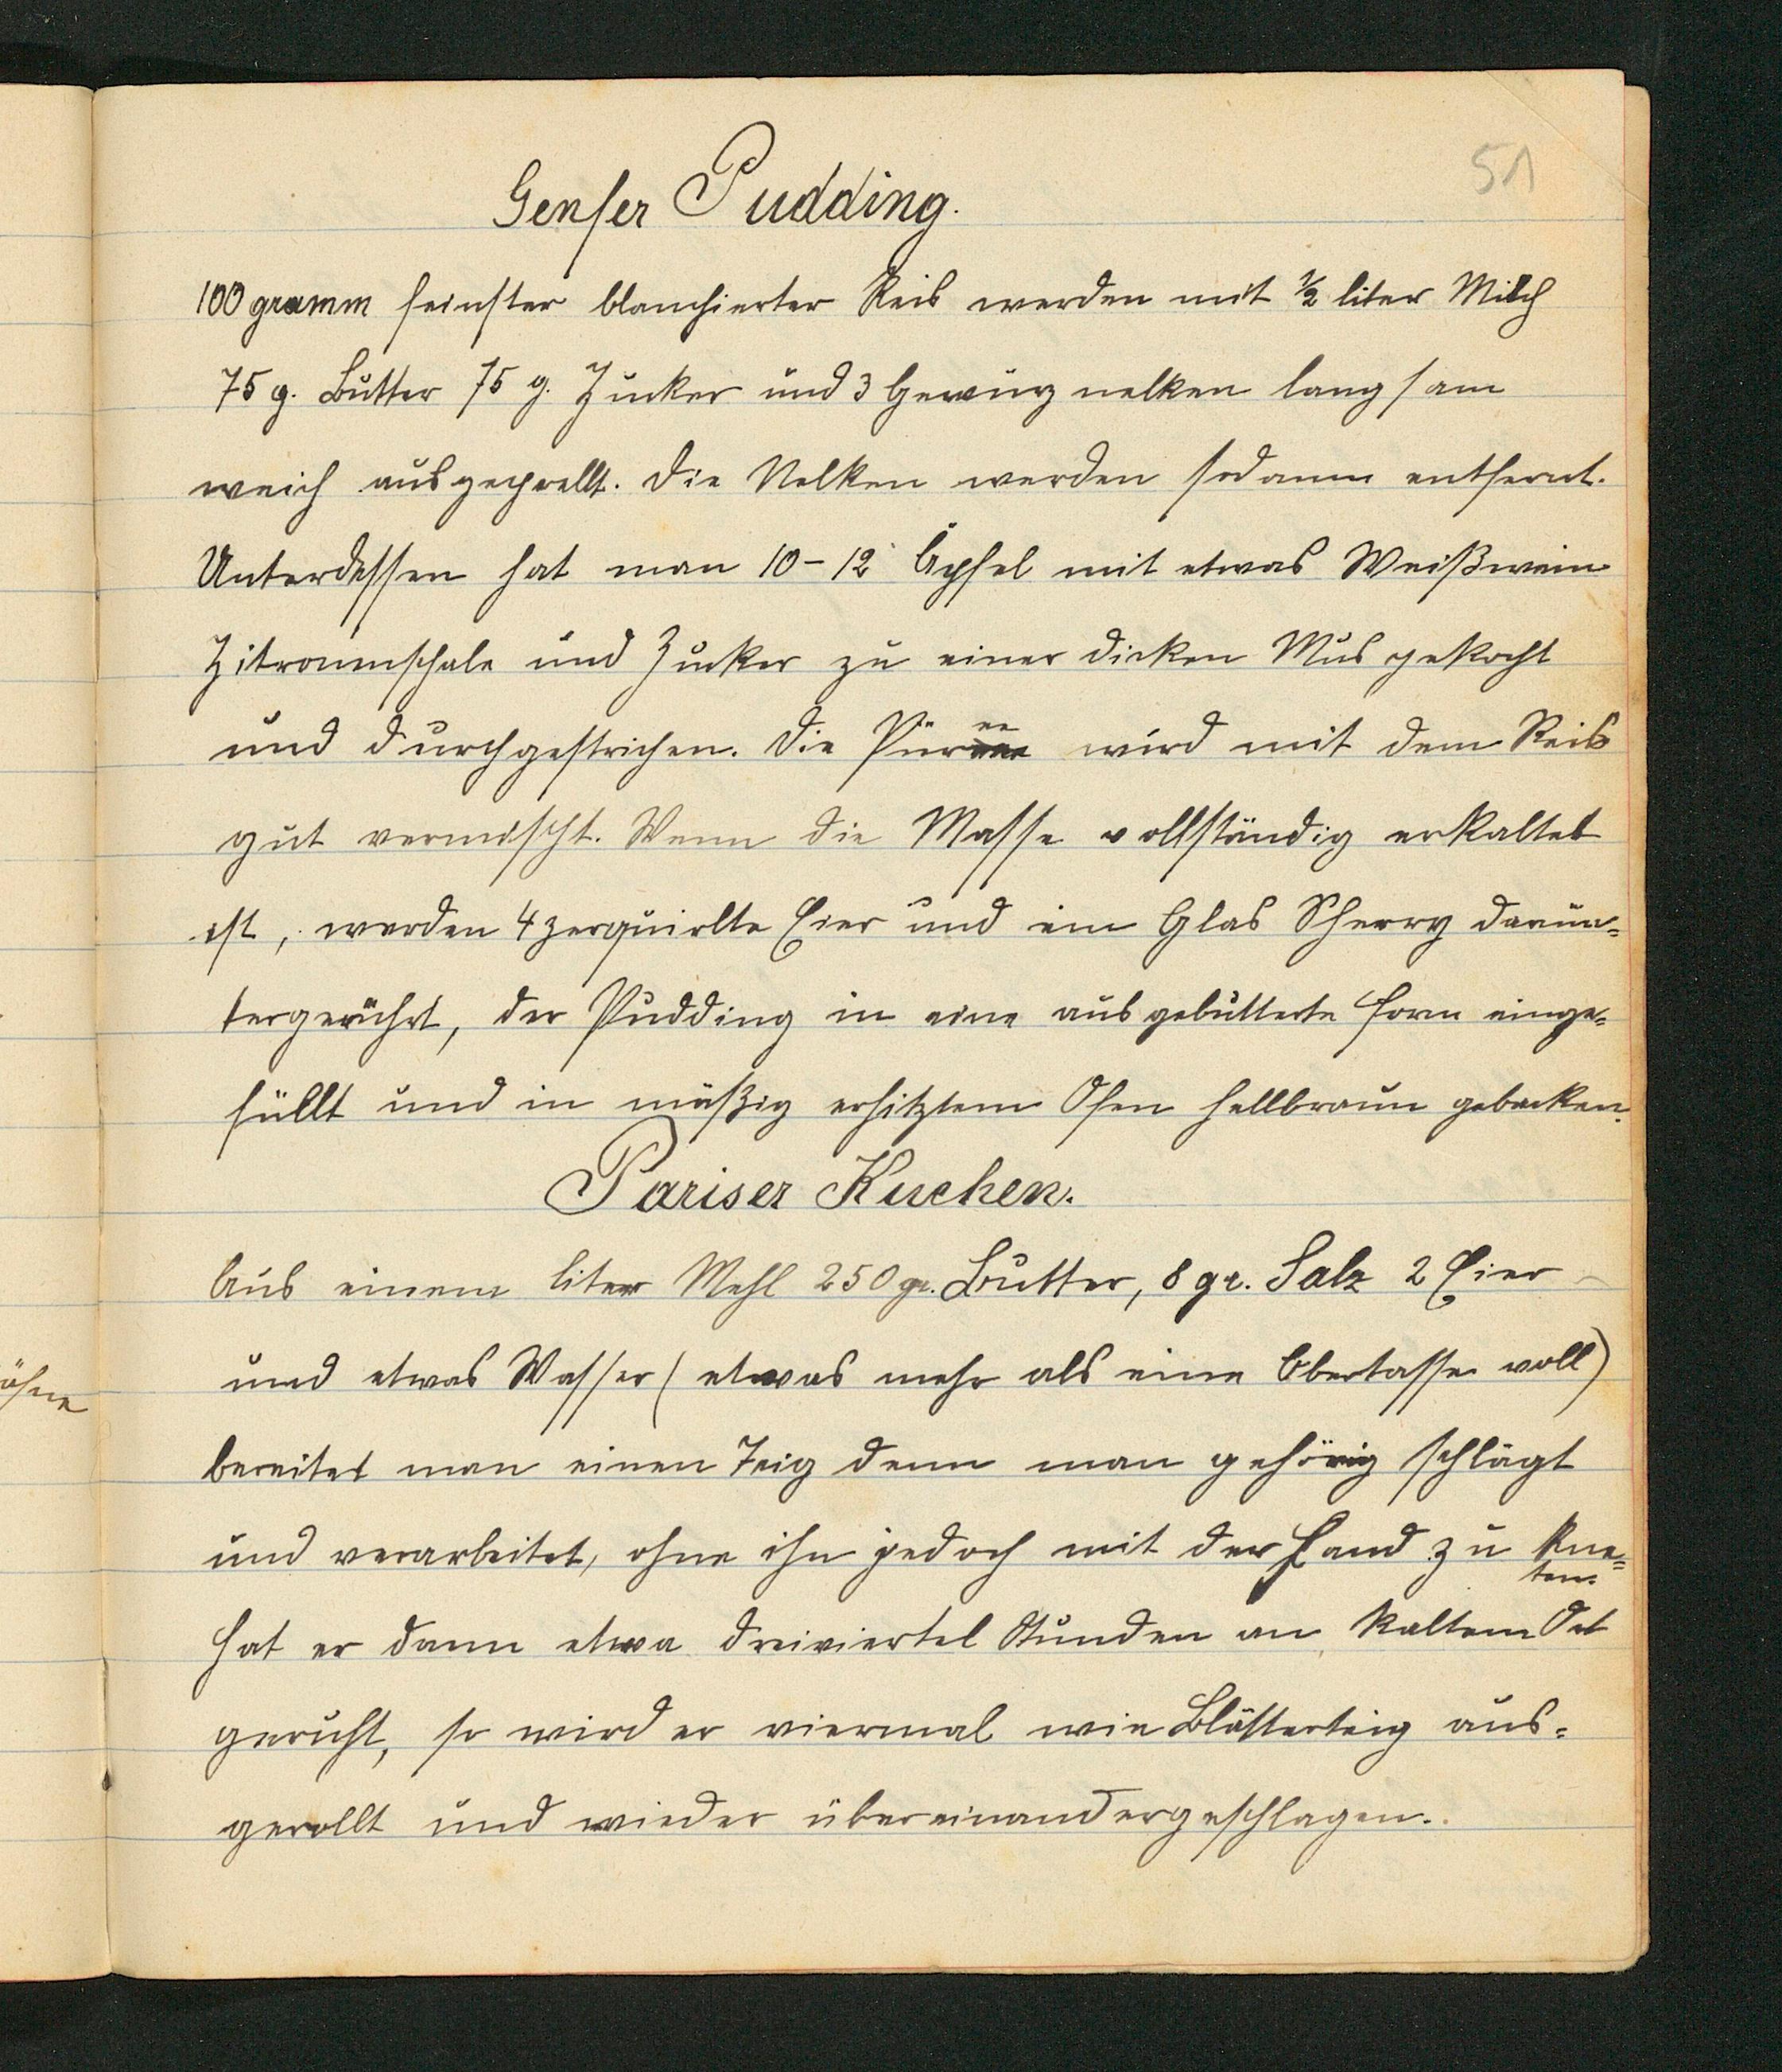 51
Genfer Pudding.
100 gramm feinster blanchierter Reis werden mit ½ liter Milch
75 g. Butter 75 g. Zucker und 3 Gewürznelken langsam
weich ausgequellt. Die Nelken werden sodann entfernt.
Unterdessen hat man 10-12 Äpfel mit etwas Weißwein
Zitronenschale und Zucker zu einer dicken Mus gekocht
und durchgestrichen. Die Püree wird mit dem Reis
gut vermischt. Wenn die Masse vollständig erkaltet
ist, werden 4 zerquirlte Eier und ein Glas Scherry darun=
tergerührt, der Pudding in eine ausgebutterte Form einge=
füllt und in mäßig erhitztem Ofen hellbraun gebacken.
Pariser Kuchen.
Aus einem liter Mehl 250 gr. Butter, 8 gr. Salz 2 Eier
und etwas Wasser (etwas mehr als eine Obertasse voll)
bereitet man einen Teig denn man gehörig schlägt
und verarbeitet, ohne ihn jedoch mit der Hand zu kne=
ten.
Hat er dann etwa dreiviertel Stunden an kaltem Ort
geruht, so wird er viermal wie Blätterteig aus=
gerollt und wieder übereinandergeschlagen.